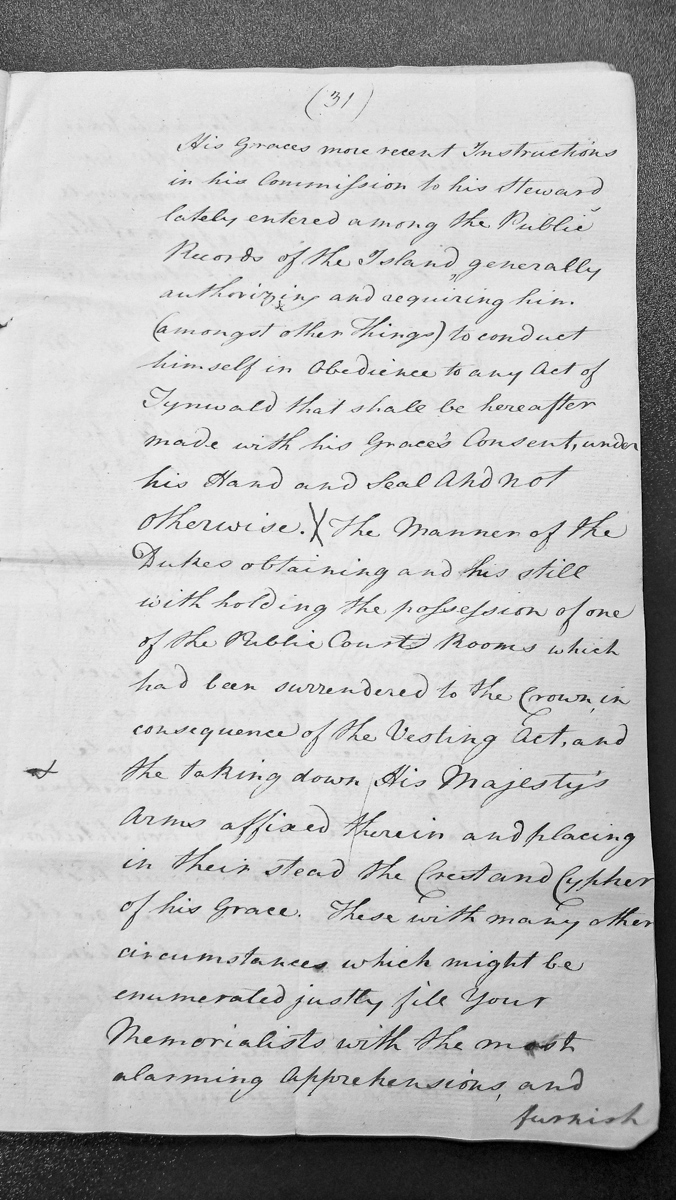 (31)
His Graces more recent Instructions
in his Commission to his Steward
lately entered among the Public
Records of the Island, generally
authorizing and requiring him
(amongst other Things) to conduct
himself in Obedience to any Act of
Tynwald that shall be hereafter
made with his Grace's Consent, under
his Hand and Seal And not
otherwise. X The Manner of the
Dukes obtaining and his still
with holding the possession of one
of the Public Courts Rooms which
had been surrendered to the Crown, in
consequence of the Vesting Act, and
the taking down His Majesty's
Arms affixed therein and placing
in their stead the Crest and Cypher
of his Grace. These with many other
circumstances which might be
enumerated justly fill Your
Memorialists with the most
alarming Apprehensions, and
furnish